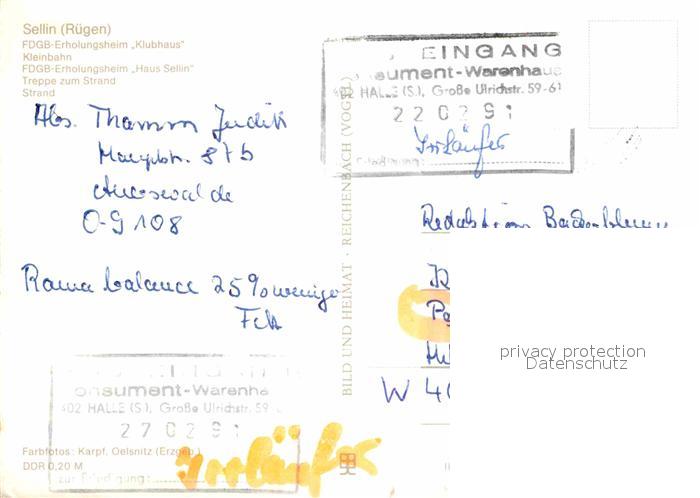 Sellin (Rügen)
FDGB-Erholungsheim „Klubhaus"
Kleinbahn
FDGB-Erholungsheim „Haus Sellin"
Treppe zum Strand
Strand
Abs. Thamm Judith
Hauptstr. 87b
O-9108
Rama balance 25% weniger
Fett
Farbfotos: Karpf, Oelsnitz (Erzgeb.)
DDR 0,20 M
BILD UND HEIMAT · REICHENBACH (VOGTL)
EINGANG
onsument-Warenhaus
402 HALLE (S.), Große Ulrichstr. 59-61
22 02 91
Irrläufer
Redaktion
W 40
privacy protection
Datenschutz
onsument-Warenha
402 HALLE (S.), Große Ulrichstr. 59
27 02 91
zur Erledigung:
Irrläufer